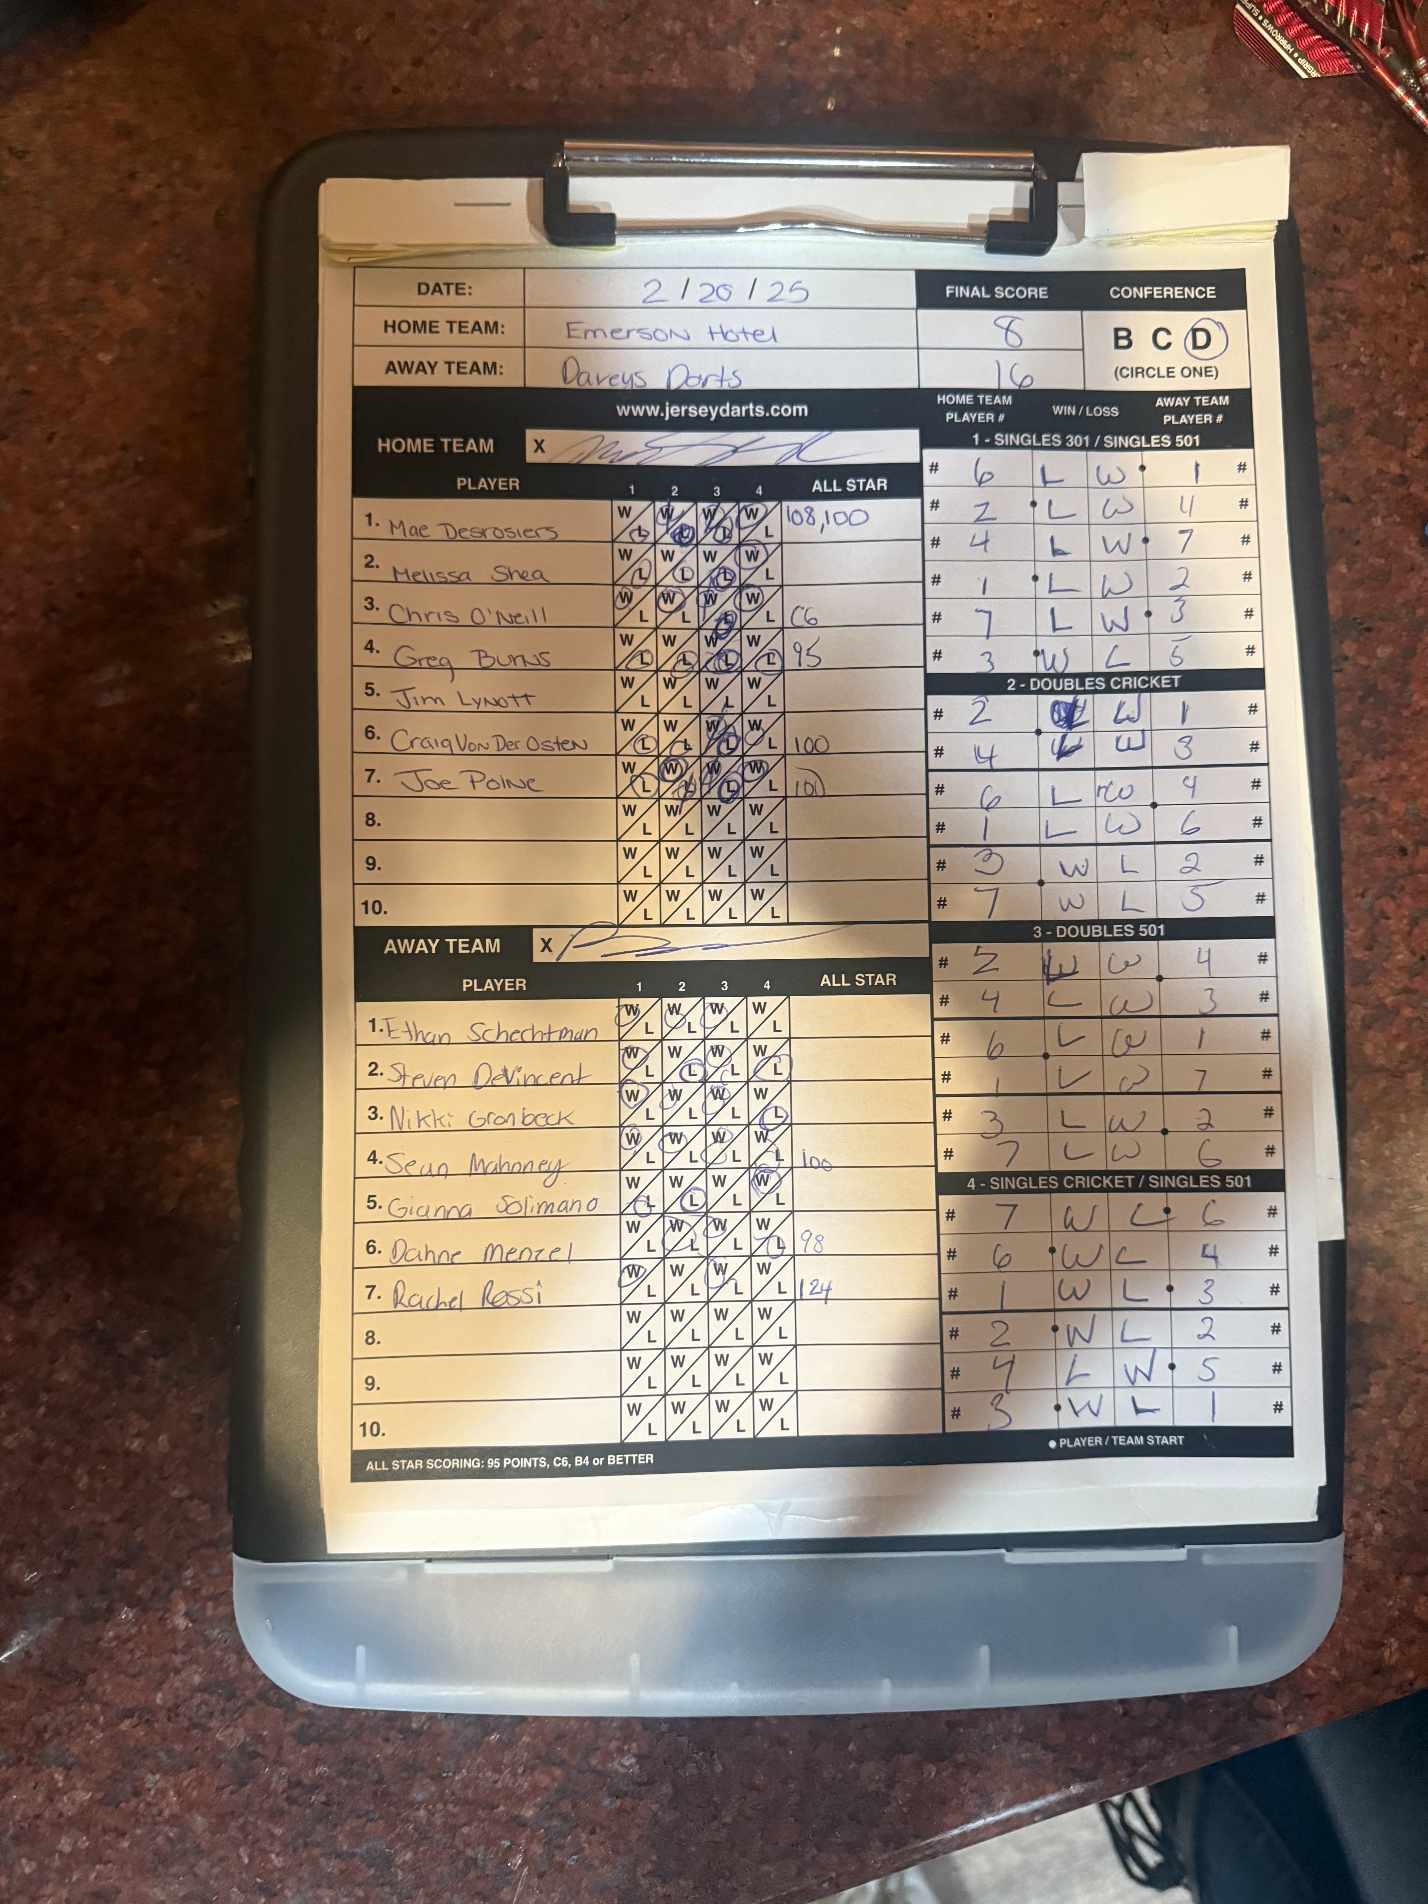 DATE: 2/20/25 FINAL SCORE CONFERENCE
HOME TEAM: Emerson Hotel 8 B C D
AWAY TEAM: Daveys Darts 16 (CIRCLE ONE)
www.jerseydarts.com
HOME TEAM X
PLAYER 1 2 3 4 ALL STAR
1. Mae Desrosiers W L W L W L W L 108,100
2. Melissa Shea W L W L W L W L
3. Chris O'Neill W L W L W L W L C6
4. Greg Burns W L W L W L W L 95
5. Jim Lynott W L W L W L W L
6. Craig Von Der Osten W L W L W L W L 100
7. Joe Poine W L W L W L W L 100
8. W L W L W L W L
9. W L W L W L W L
10. W L W L W L W L
AWAY TEAM X
PLAYER 1 2 3 4 ALL STAR
1. Ethan Schechtman W L W L W L W L
2. Steven DeVincent W L W L W L W L
3. Nikki Gronbeck W L W L W L W L
4. Sean Mahoney W L W L W L W L 100
5. Gianna Solimano W L W L W L W L
6. Dahne Menzel W L W L W L W L 98
7. Rachel Rossi W L W L W L W L 124
8. W L W L W L W L
9. W L W L W L W L
10. W L W L W L W L
ALL STAR SCORING: 95 POINTS, C6, B4 or BETTER
HOME TEAM PLAYER # WIN / LOSS AWAY TEAM PLAYER #
1 - SINGLES 301 / SINGLES 501
# 6 L W 1 #
# 2 L W 4 #
# 4 L W 7 #
# 1 L W 2 #
# 7 L W 3 #
# 3 W L 5 #
2 - DOUBLES CRICKET
# 2 L W 1 #
# 4 L W 3 #
# 6 L W 4 #
# 1 L W 6 #
# 3 W L 2 #
# 7 W L 5 #
3 - DOUBLES 501
# 2 L W 4 #
# 4 L W 3 #
# 6 L W 1 #
# 1 L W 7 #
# 3 L W 2 #
# 7 L W 6 #
4 - SINGLES CRICKET / SINGLES 501
# 7 W L 6 #
# 6 W L 4 #
# 1 W L 3 #
# 2 W L 2 #
# 4 L W 5 #
# 3 W L 1 #
● PLAYER / TEAM START